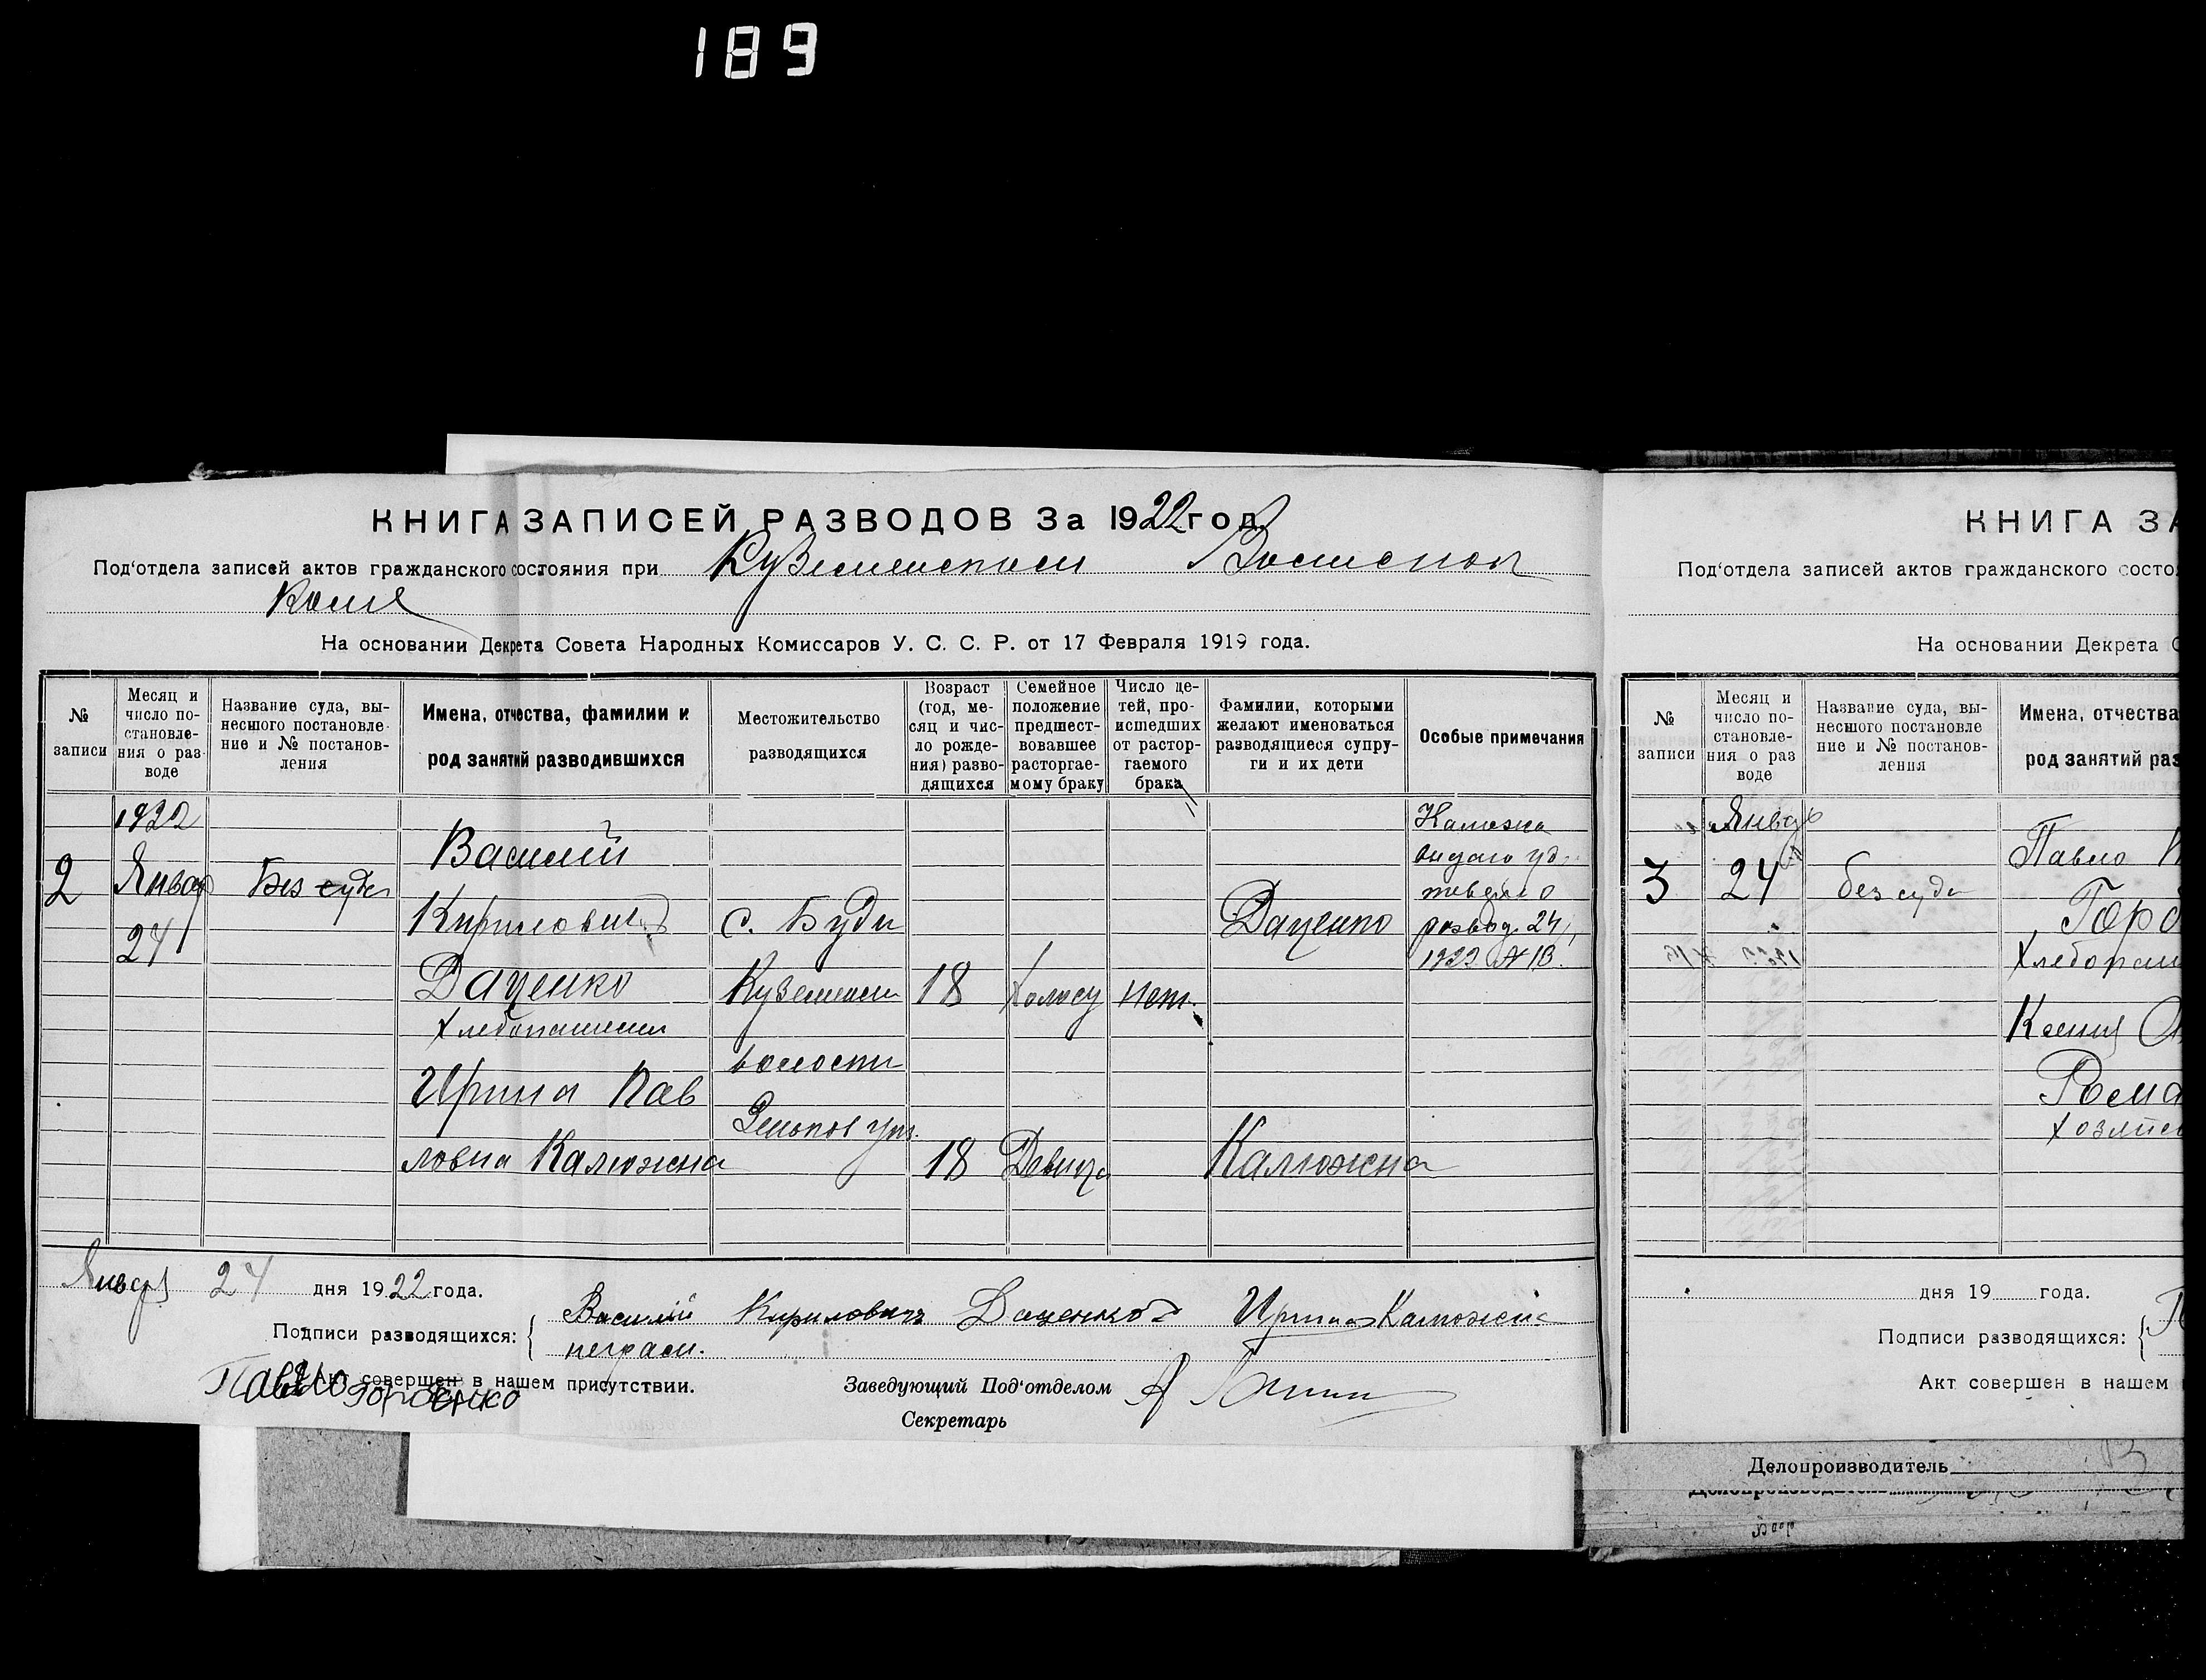 189
КНИГА ЗАПИСЕЙ РАЗВОДОВ За 1922 год.
Под‘отдела записей актов гражданского состояния при
На основании Декрета Совета Народных Комиссаров У. С. С. Р. от 17 Февраля 1919 года.
№ записи
Месяц и число по-
становле-
ния о раз
воде
Название суда, вы-
несшого постановле-
ние и № постанов-
ления
Имена, отчества, фамилии и
род занятий разводившихся
Местожительство
разводящихся
Возраст
(год, ме-
сяц и чис-
ло рожде-
ния) разво-
дящихся
Семейное
положение
предшест-
вовавшее
расторгае-
мому браку
Число де-
тей, про-
исшедших
от растор-
гаемого
брака
Фамилии, которыми
желают именоваться
разводящиеся супру-
ги и их дети
Особые примечания
1922
2 Январ Без суда
24
Василий
Кирилович
Даценко
Ирина Пав
ловна Калюжна
с. Буди
волости
18 нет.
18 Девица
Даценко
Калюжна
1922 №13.
Январ 24 дня 1922 года.
Подписи разводящихся:
Василий Кирилович Даценко Ирина Калюжна
неграм.
Акт совершен в нашем присутствии.
Павло Гордєнко
Заведующий Под‘отделом
Секретарь
КНИГА ЗА
Под‘отдела записей актов гражданского состоя
На основании Декрета С
№ записи
Месяц и
число по-
становле-
ния о раз
воде
Название суда, вы-
несшого постановле
ние и № постанов-
ления
Имена, отчества
род занятий раз
Январь
3 24 без суда
Павло
Горд
Ксения
Рома
дня 19 года.
Подписи разводящихся:
Акт совершен в нашем
Делопроизводитель